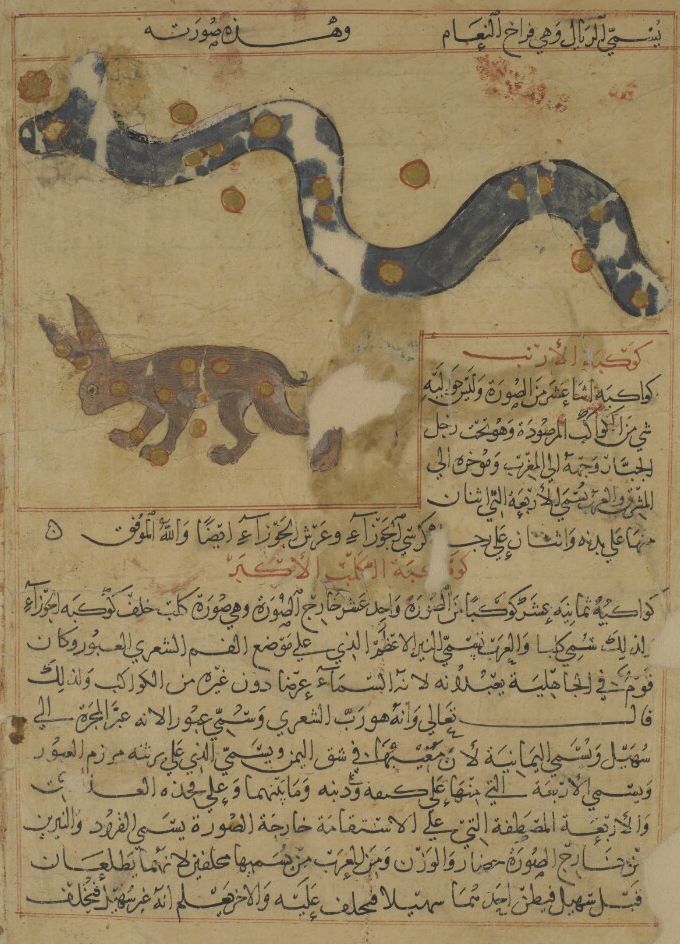 يسمي الريال وهي فراخ النعام وهذه صورته
كوكبة الأرنب
كواكبه اثنا عشر من الصورة وليس حواليه
شي من الكواكب المرصودة وهو تحت رجل
الجبار وجهه الي المغرب وموخره الي
المشرق والعرب تسمي الأربعة التي اثنان
منها علي يديه واثنان علي رجليه كرسي الجوزآء وعرش الجوزآء ايضًا والله الموفق
كوكبة الكلب الأكبر
كواكبه ثمانية عشر كوكبًا من الصورة واحد عشر خارج الصورة وهي صورة كلب خلف كوكبة الجوزآء
ولذلك سمي كلبا والعرب تسمي النير الاعظم الذي علي موضع الفم الشعري العبور وكان
قوم في الجاهلية يعبدونه لانه السمآء عرضا دون غيره من الكواكب ولذلك
قال تعالي وانه هو رب الشعري وسمي عبور الانه عبر المجرة الي
سهيل ويسمي اليمانية لأن مغيبها في شق اليمن ويسمي الذي علي يده مرزم العبور
ويسمي الأربعة التي منها علي كتفه وذنبه وما بينهما وعلي فخذه العذاري
والأربعة المصطفة التي علي الاستقامة خارجة الصورة يسمي القرود والنيرين
خارج الصورة حضار والوزن ومن العرب من يسميها محلفين لانهما يطلعان
قبل سهيل فيظن احدهما سهيلا فيحلف عليه والاخر يعلم انه غير سهيل فيحلف